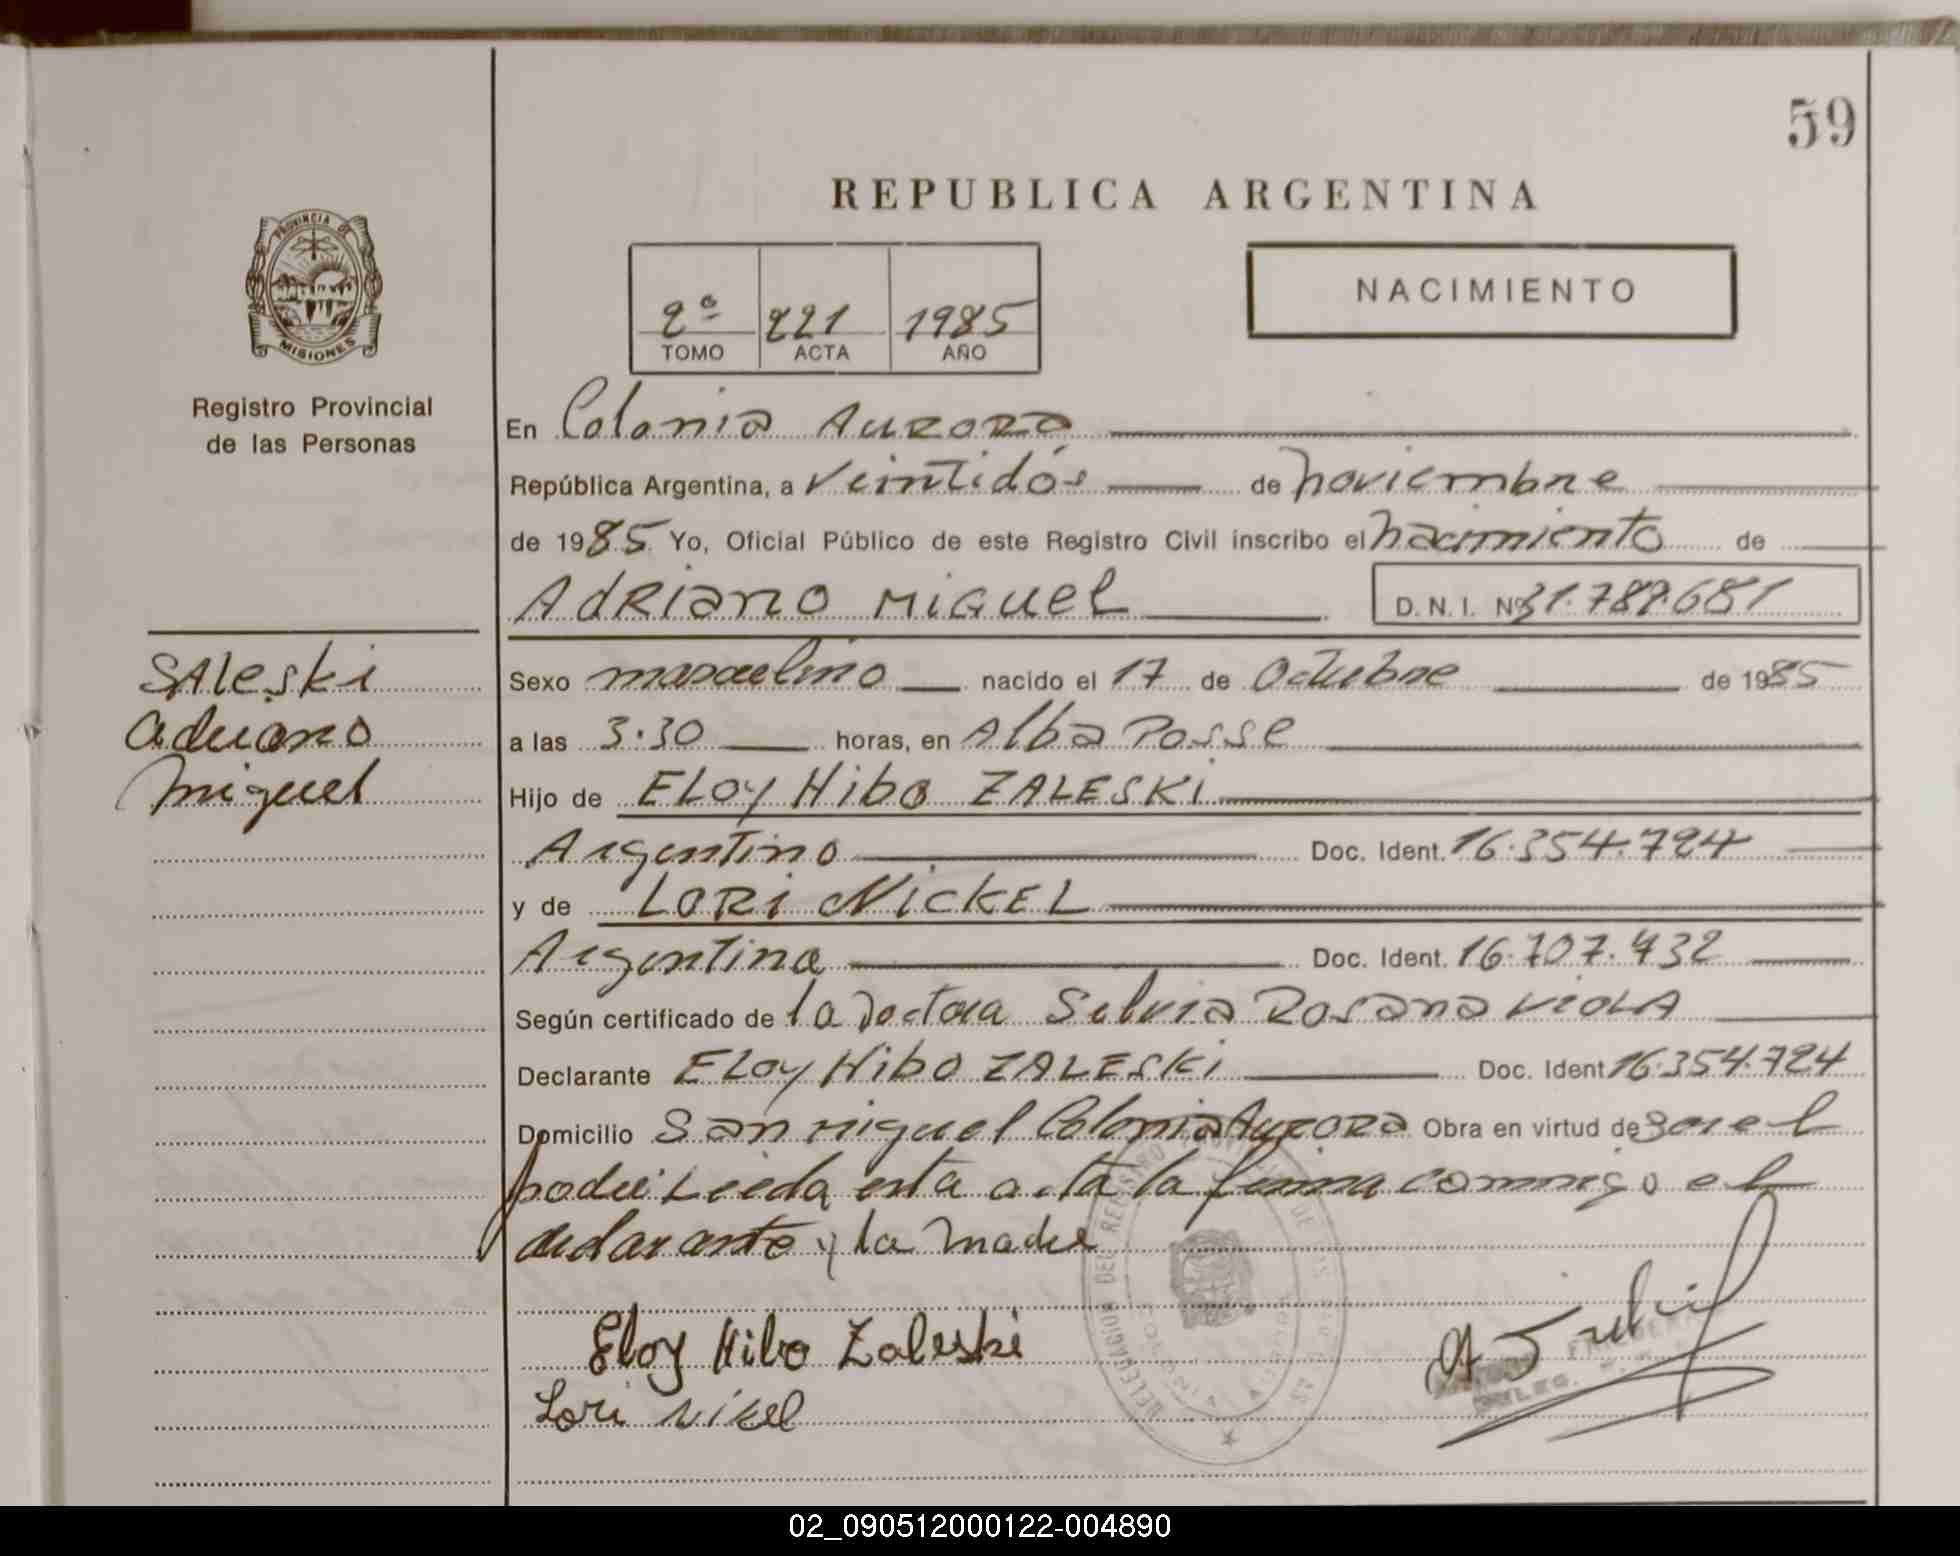 59
REPUBLICA ARGENTINA
PROVINCIA DE
MISIONES
Registro Provincial
de las Personas
2º 221 1985
TOMO ACTA AÑO
NACIMIENTO
En Colonia Aurora
República Argentina, a veintidós de noviembre
de 1985 Yo, Oficial Público de este Registro Civil inscribo el nacimiento de
Adriano Miguel D. N. I. Nº 31.789.681
Saleski
Adriano
Miguel
Sexo masculino nacido el 17 de Octubre de 1985
a las 3.30 horas, en Alba Posse
Hijo de ELOY Hibo ZALESKI
Argentino Doc. Ident. 16.354.724
y de LORI NICKEL
Argentina Doc. Ident. 16.707.432
Según certificado de la Doctora Silvia Rosana VIOLA
Declarante ELOY Hibo ZALESKI Doc. Ident 16.354.724
Domicilio San Miguel Colonia Aurora Obra en virtud de Ser el
padre Leida esta acta la firma conmigo el
declarante y la madre
Eloy Hibo Zaleski
Lori Nikel
DELEGACION DEL REGISTRO DE LAS
COLONIA AURORA
DELEG.
02_090512000122-004890